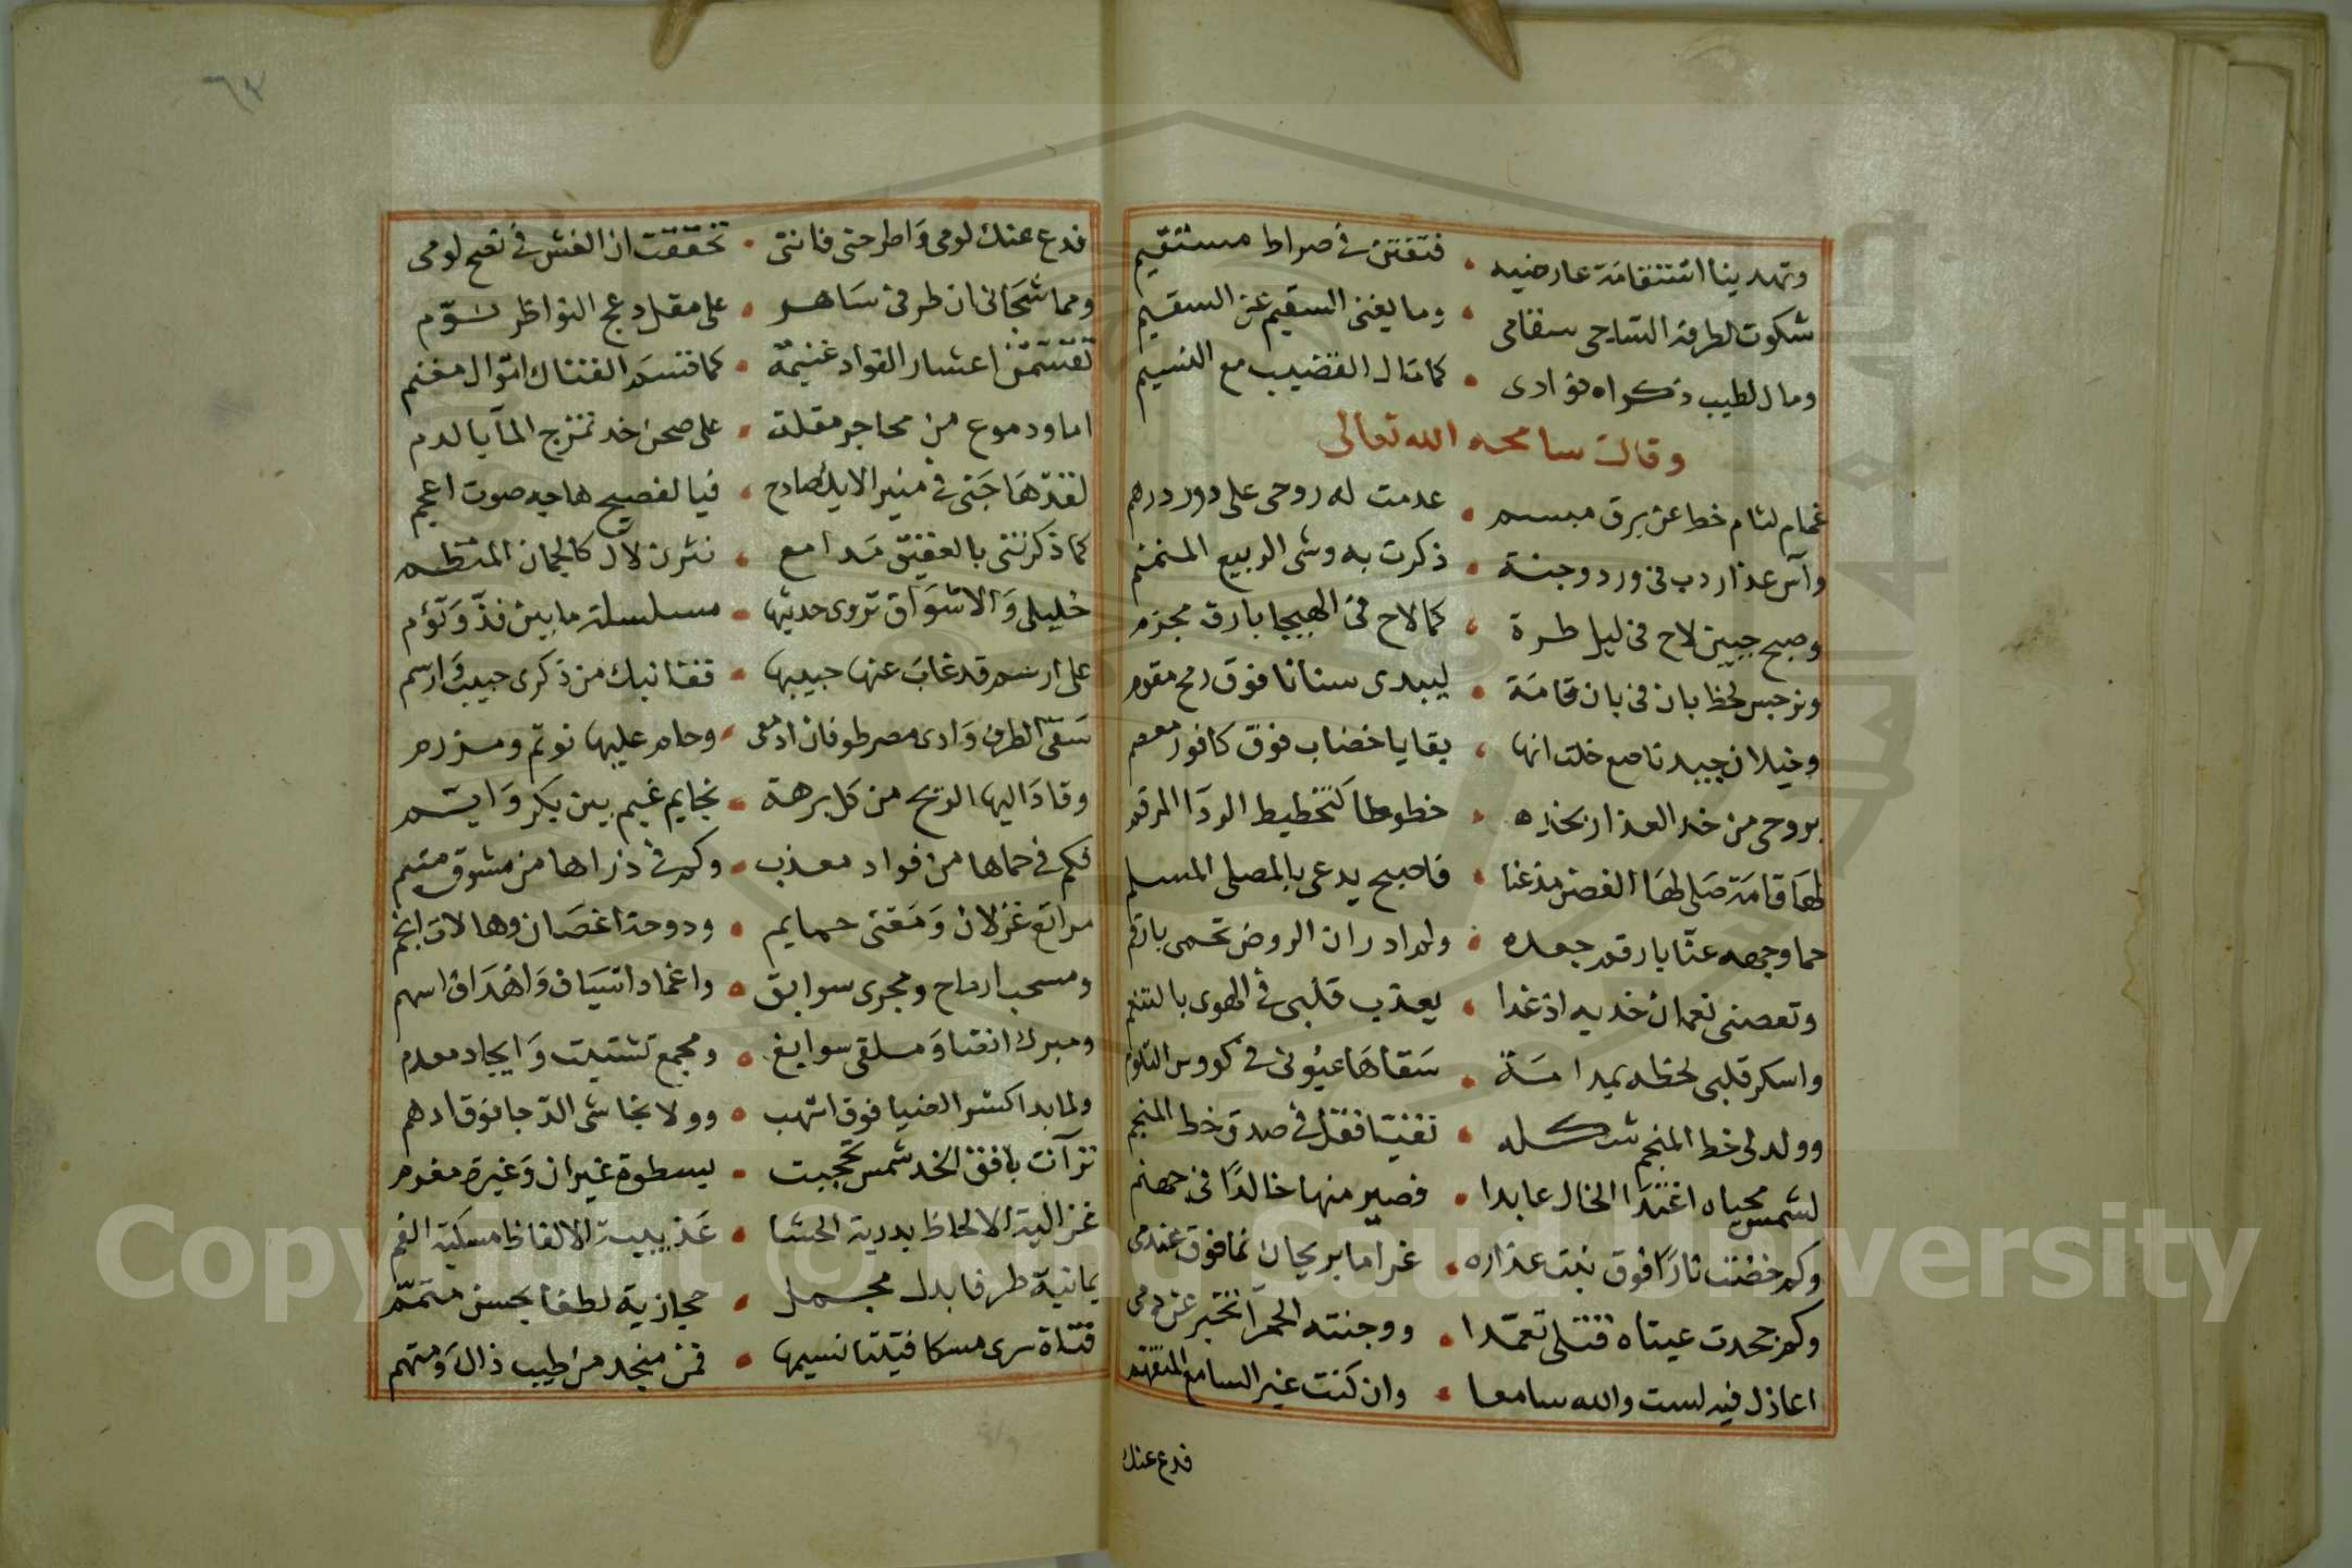 وتهدينا استقامة عارضيه • فتفتن في صراط مستقيم
شكوت لطرفه الساجى سقامى • وما يغنى السقيم عن السقيم
ومال لطيب ذكراه فؤادى • كما مال القضيب مع النسيم
وقال سامحه الله تعالى
غمام لثام خط عن برق مبسم • عدمت له روحى على دور درهم
وآس عذار دب فى ورد وجنة • ذكرت به وشى الربيع المنمنم
وصبح جبين لاح فى ليل طرة • كما لاح فى الهيجا بارق مجزم
ونرجس لحظ بان فى بان قامة • ليبدى سنانا فوق رمح مقوم
وخيلان جيد ناصع خلت انها • بقايا خضاب فوق كافور معصم
بروحى من خد العذار بخده • خطوطا كتخطيط الردا المرقم
لها قامة صلى لها الغصن مذعنا • فاصبح يدعى بالمصلى المسلم
حما وجهه عنا بارقم جعده • ولم ادر ان الروض تحمى بارقم
وتعصنى نعمان خديه اذ غدا • يعذب قلبى في الهوى بالتنعم
واسكر قلبى لحظه بمدامة • سقاها عيونى في كووس التلوم
وولد لى خط المنجم شكله • تفنيا فقل في صدق خط المنجم
لشمس محياه اغتدا الخال عابدا • فصير منها خالدا فى جهنم
وكم خضت نارا فوق نبت عذاره • غراما بريحان نما فوق عندمى
وكم جحدت عيناه قتلى تعمدا • ووجنته الحمرآ تخبر عن دمى
اعاذل فيه لست والله سامعا • وان كنت غير السامع المتفهم
فدع عنك
٦٣
فدع عنك لومى واطرحنى فاننى • تحققت ان الغش في نصح لومى
ومما شجانى ان طرفى ساهر • على مقل دعج النواظر نوم
تقسمن اعشار الفواد غنيمة • كما قسم الفتاك اموال مغنم
اما ودموع من محاجر مقلة • على صحن خد تمتزج المآ بالدم
لقد هاجنى في منبر الايك صادح • فيا لفصيح هاجه صوت اعجم
كما ذكرتنى بالعقيق مدامع • نثرن لآل كالجمان المنظم
خليلى والاشواق تروى حديثها • مسلسلة ما بين فذ وتؤم
على ارسم قد غاب عنها حبيبها • قفا نبك من ذكرى حبيب وارسم
سقى الطرف وادى مصر طوفان ادمعى • وحام عليها نوتم ومرزم
وقاد اليها الريح من كل برهة • نجايم غيم بين بكر وايم
فكم في حماها من فواد معذب • وكم في ذراها من مشوق متيم
مراتع غزلان ومغنى حمايم • ودوحة اغصان وهالات انجم
ومسحب ارماح ومجرى سوابق • واغماد اسياف واهداف اسهم
ومبرك انضا وملقى سوابغ • ومجمع تشتيت وايجاد معدم
ولما بدا كسر الضيا فوق اشهب • وولا نجاشى الدجا فوق ادهم
تزآنت بافق الخد شمس تحجبت • بسطوة غيران وغيرة مغرم
غزالية الالحاظ بدرية الحشا • عذيبية الالفاظ مسكية الفم
يمانية طرفا بدل مجمل • حجازية لطفا بحسن متمم
فتاة سرى مسكا فتيتا نسيمها • فمن منجد من طيب ذاك ومتهم
Copyright © King Saud University